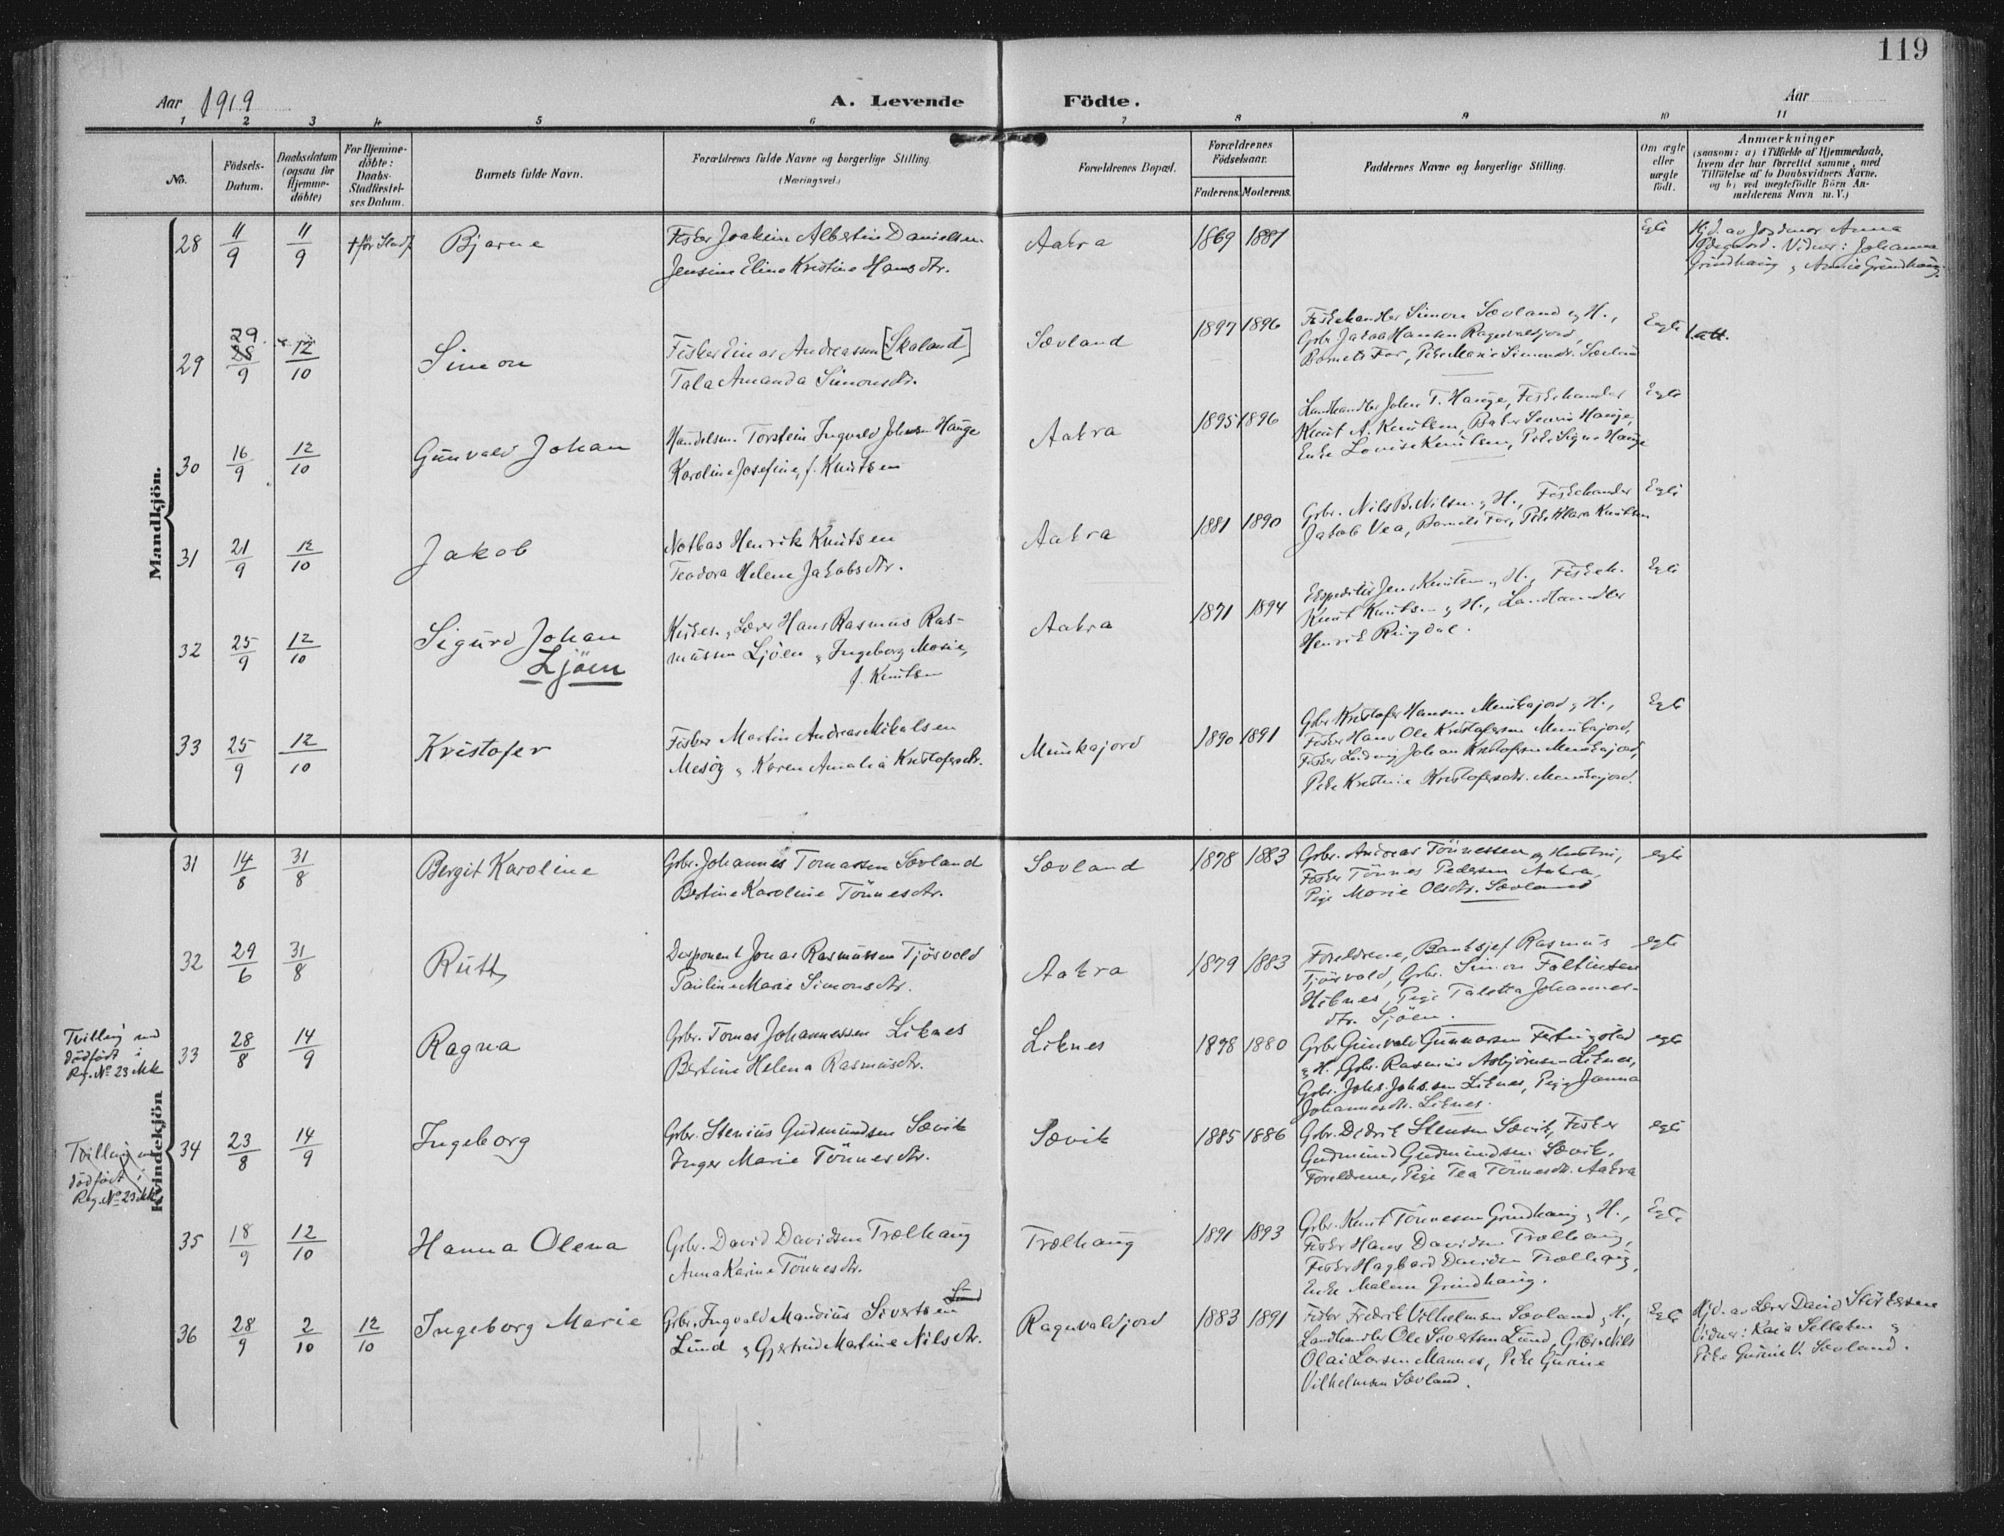 119
Aar 1919
A. Levende Födte.
Aar
1 2 3 4 5 6 7 8 9 10 11
No.
Födsels-
Datum.
Daabsdatum
(ogsaa for
Hjemme-
döbte)
For Hjemme-
döbte:
Daabs-
Stadfæstel-
ses Datum.
Barnets fulde Navn.
Forældrenes fulde Navne og borgerlige Stilling.
(Næringsvei.)
Forældrenes Bopæl.
Forældrenes
Födselsaar.
Faderens. Moderens.
Faddernes Navne og borgerlige Stilling.
Om ægte
eller
uægte
födt.
Anmærkninger
(saasom: a) i Tilfælde af Hjemmedaab,
hvem der har forrettet samme, med
Tilföielse af to Daabsvidners Navne,
og b) ved uægtefödte Börn An-
melderens Navn m. V.)
Mandkjön.
28 11/9 11/9 † før Stadf. Bjarne
Fisker Joakim Albertin Danielsen
Jensine Eline Kristine Hansdtr.
Aakra 1869 1881 Egte
Hjd. av Jordmor Anna
Vidner: Johanna
Grindhaug og Annie Grindhaug.
29 29/9 12/10 Simon
Fisker Einar Andreassen [Skaland]
Tala Amanda Simonsdtr.
Sævland 1897 1896
Fiskehandler Simon Sævland og H.,
Gbr. Jakob Hansen Ragnvaldsjord,
Barnets Far, Pike Marie Simonsdtr. Sævland
Egte
30 16/9 12/10 Gunvald Johan
Handelsm. Torstein Ingvald Johnsen Hauge
Karoline Josefine, f. Knutsen
Aakra 1895 1896
Landhandler John T. Hauge, Fiskehandler
Knut A. Knutsen, Baker Hauge,
Enke Lovise Knutsen, Pike Signe Hauge
Egte
31 21/9 12/10 Jakob
Notbas Henrik Knutsen
Teodora Helene Jakobsdtr.
Aakra 1881 1890
Gbr. Nils B. Nilsen og H., Fiskehandler
Jakob Vea, Barnets Far, Pike Klara Knutsen
Egte
32 25/9 12/10 Sigurd Johan
Ljöen
Kirkes. og Lærer Hans Rasmus Ras-
mussen Ljöen og Ingeborg Marie,
f. Knutsen
Aakra 1871 1894
Ekspeditör Jens Knutsen og H., Fiskeh.
Knut Knutsen og H., Landhandler
Henrik Ringdal.
Egte
33 25/9 12/10 Kristofer
Fisker Martin Andreas Mikalsen
Mesöy og Karen Amalia Kristofersdtr.
Munkajord 1890 1891
Gbr. Kristofer Hansen Munkajord og H.,
Fisker Hans Ole Kristofersen Munkajord,
Fisker Ludvig Johan Kristofersen Munkajord,
Pike Kristine Kristofersdtr. Munkajord.
Egte
Kvindekjön
31 14/8 31/8 Bergit Karoline
Gbr. Johannes Tomassen Sævland
Bertine Karoline Tönnesdtr.
Sævland 1878 1883
Gbr. Andreas Tönnessen og Hustru,
Fisker Tönnes Pedersen Aakra,
Pige Marie Olsdtr. Sævland
egte
32 29/6 31/8 Rutt
Disponent Jonas Rasmussen Tjösvold
Pauline Marie Simonsdtr.
Aakra 1879 1883
Foreldrene, Banksjef Rasmus
Tjösvold, Gbr. Simon Faltinsen
Hiknes, Pige Taletta Johannes-
dtr. Sjöen.
egte
Tvilling med
dödfödt i
Reg. No 23 Mk
33 28/8 14/9 Ragna
Gbr. Tomas Johannessen Liknes
Bertine Helena Rasmusdtr.
Liknes 1878 1880
Gbr. Gunvald Gunnarsen Ferkingstad
og H., Gbr. Rasmus Asbjörnsen Liknes,
Gbr. Johs. Johs.sen Liknes, Pige Janna
Johannesdtr. Liknes.
egte
Tvilling med
dödfödt i
Reg. No 23 Mk
34 23/8 14/9 Ingeborg
Gbr. Stenius Gudmundsen Sævik
Inger Marie Tönnesdtr.
Sævik 1885 1886
Gbr. Didrik Stensen Sævik, Fisker
Gudmund Gudmundsen Sævik,
Foreldrene, Pige Tea Tönnesdtr. Aakra
egte
35 18/9 12/10 Hanna Olena
Gbr. David Davidsen Trælhaug
Anna Karine Tönnesdtr.
Trælhaug 1891 1893
Gbr. Knut Tönnesen Grindhaug og H.,
Fisker Hans Davidsen Trælhaug,
Fisker Hagbard Davidsen Trælhaug,
Enke Malene Grindhaug.
Egte
36 28/9 2/10 12/10 Ingeborg Marie
Gbr. Ingvald Mandius Sivertsen
Lund og Gjertrud Martine Nilsdtr.
Ragnvaldsjord 1883 1891
Fisker Fredrik Vilhelmsen Sævland og H.,
Landhandler Ole Sivertsen Lund, Gbr. Nils
Olai Larsen Mannes, Pike Gurine
Vilhelmsen Sævland.
Egte
Hjd. av Lærer David Störkersen
Vidner: Kaia Sellesen og
Pike Gurine V. Sævland.